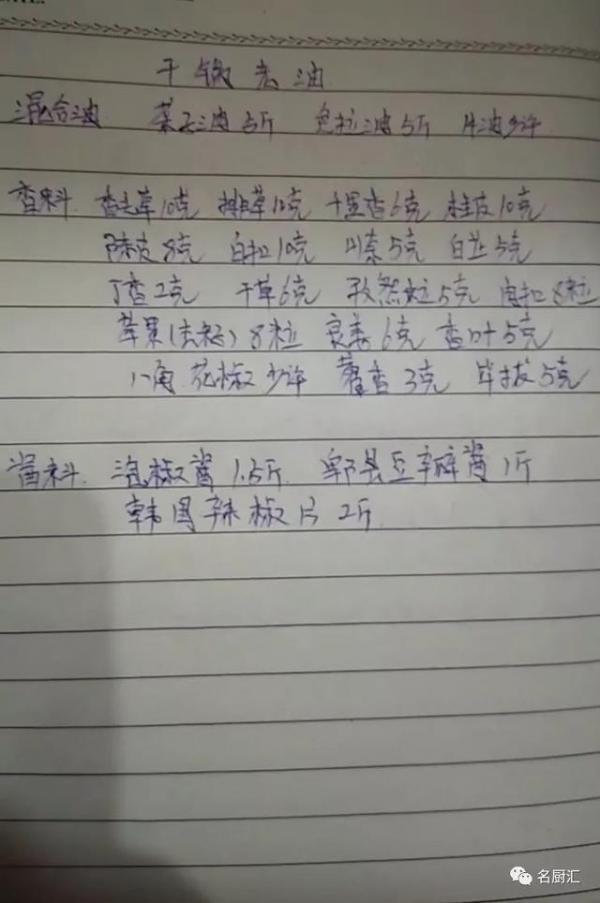 干锅老油
混合油 菜子油5斤 色拉油5斤 牛油少许
香料 香草10克 排草10克 千里香6克 桂皮10克
陈皮8克 白扣10克 山柰5克 白芷5克
丁香2克 干草6克 孜然粒5克 肉扣8粒
草果(去籽)8粒 良姜6克 香叶5克
八角 花椒少许 藿香3克 毕拔5克
酱料 泡椒酱1.5斤 郫县豆瓣酱1斤
韩国辣椒片2斤
名厨汇